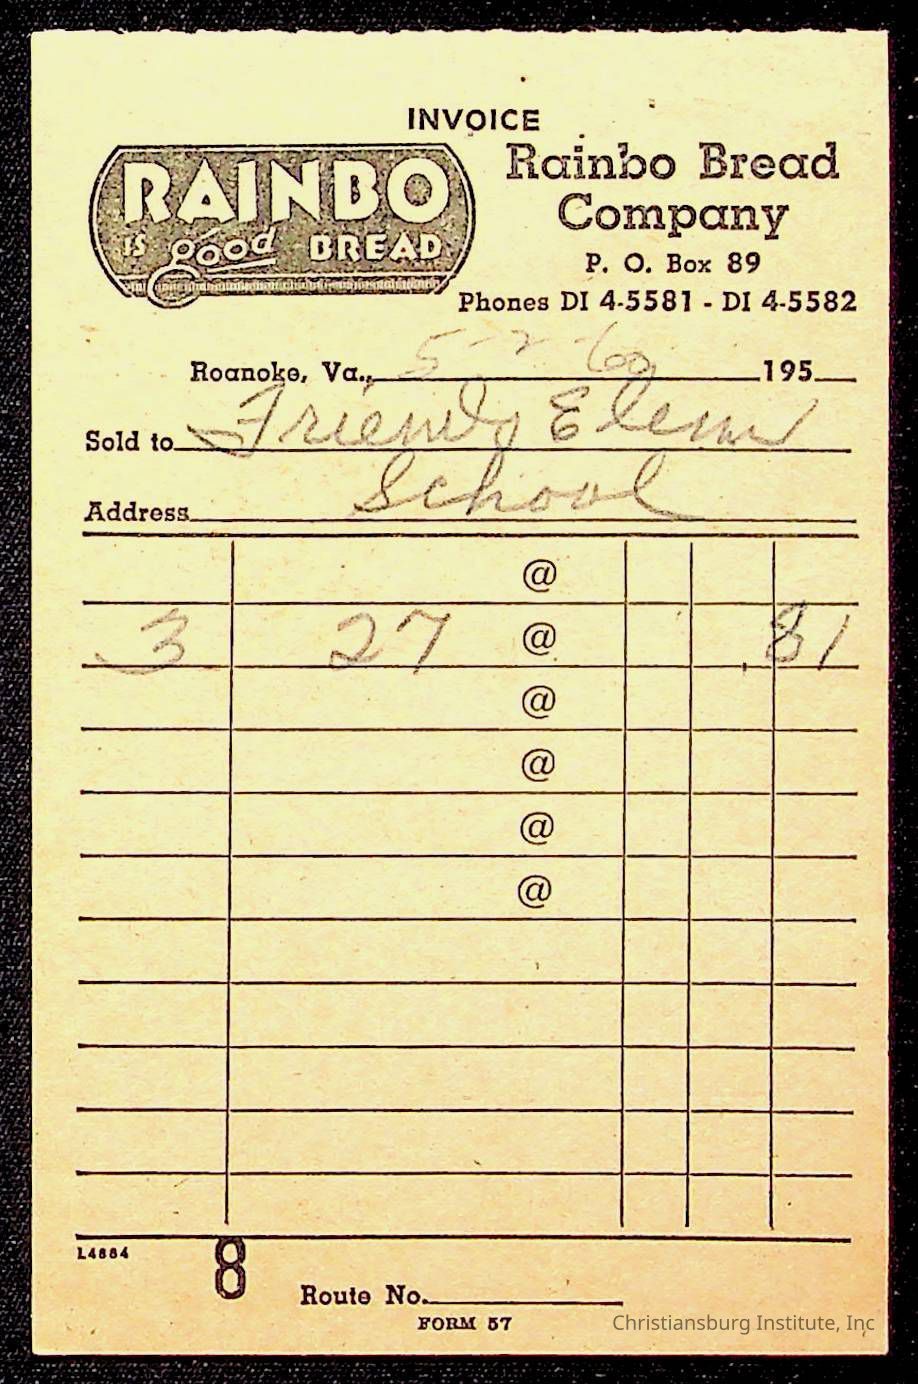 INVOICE
RAINBO
IS good BREAD
Rainbo Bread
Company
P. O. Box 89
Phones DI 4-5581 - DI 4-5582
Roanoke, Va., 5-2-60 195
Sold to Friends Elem
School
Address
@
3 27 @ .81
@
@
@
@
L4884
8
Route No.
FORM 57
Christiansburg Institute, Inc